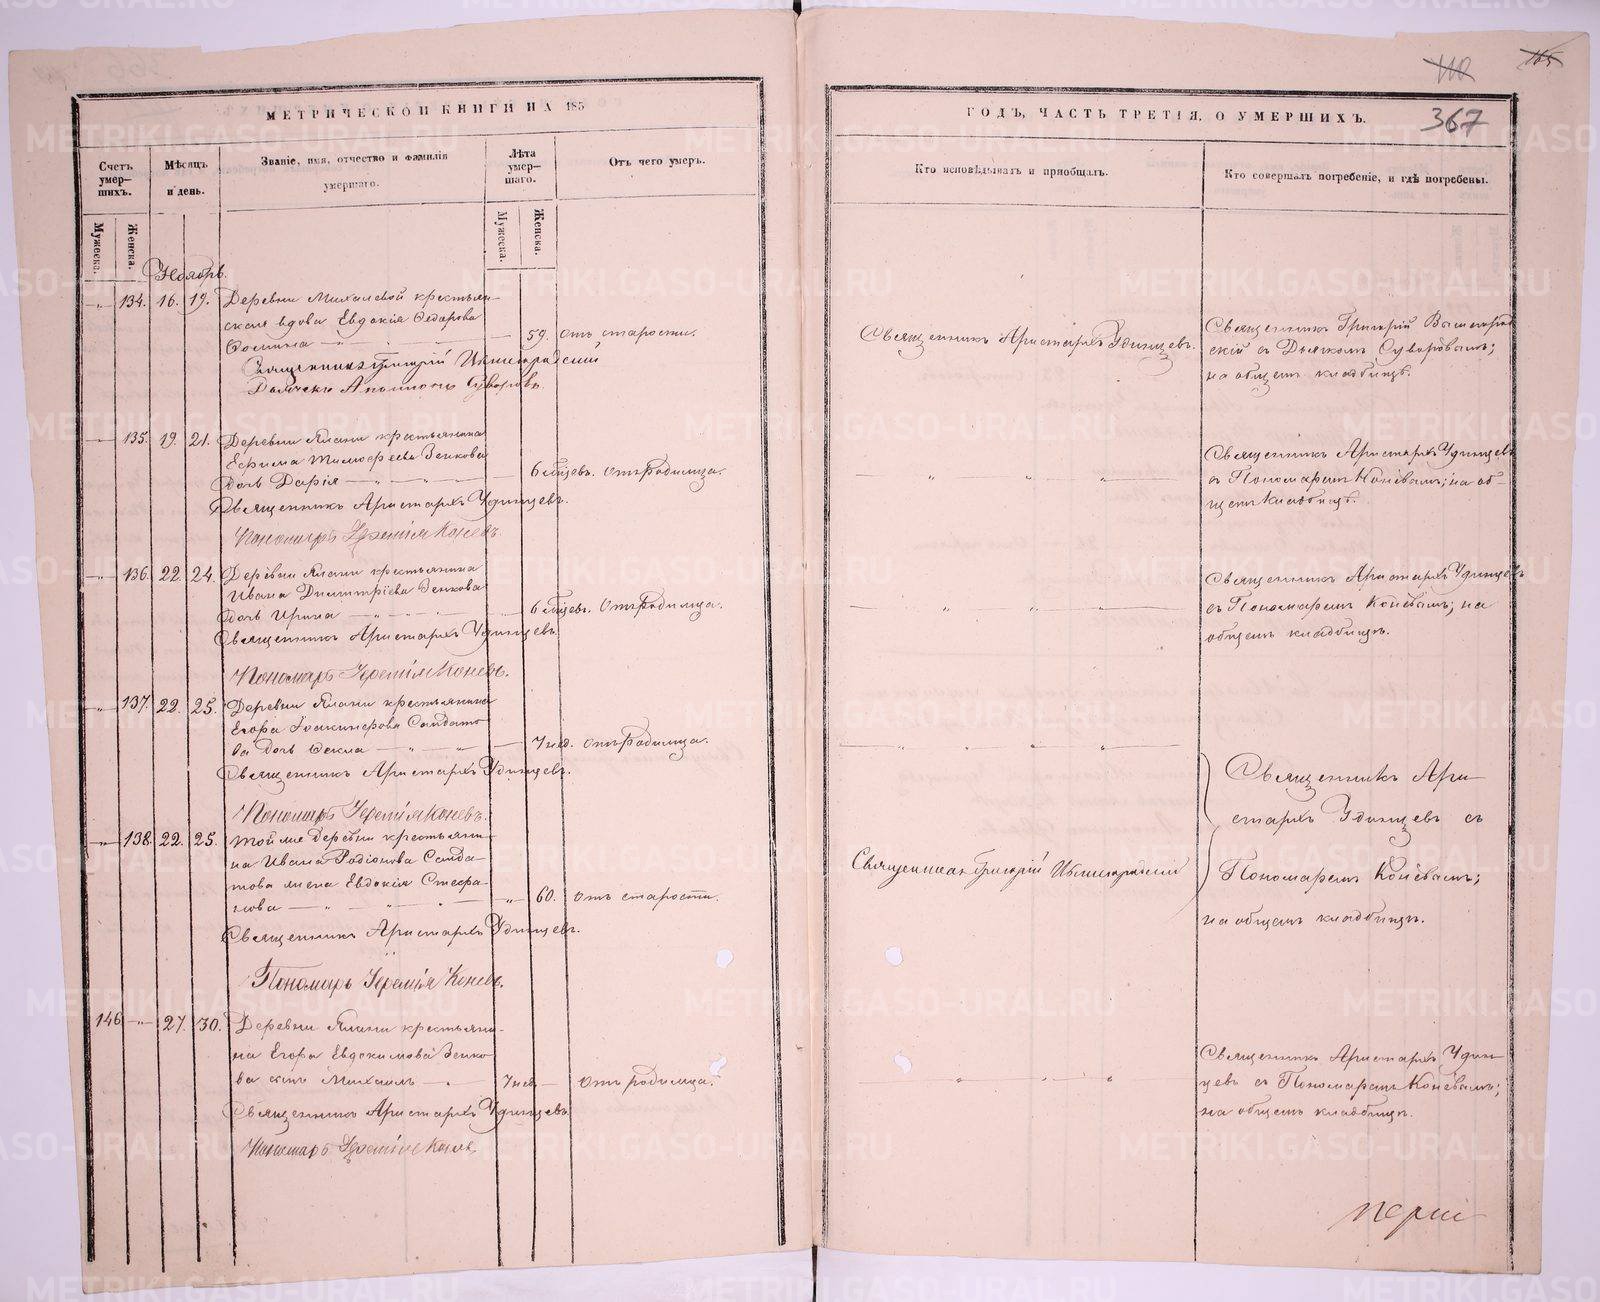 110
165
367
МЕТРИЧЕСКОЙ КНИГИ НА 185
Счетъ умер-шихъ.
Мѣсяцъ и день.
Званіе, имя, отчество и фамилія умершаго.
Лѣта умер-шаго.
Отъ чего умеръ.
Мужеска.
Женска.
Мужеска.
Женска.
Ноябрь.
134. 16. 19. Деревни Михалевой крестьян-
ская вдова Евдокія Ѳедорова
59. отъ старости.
Священникъ Григорій
Дьячекъ Суворовъ.
135. 19. 21. Деревни Ялани крестьянина
Ефима Тимофеева Зенкова
дочь Дарія 6 мѣсев. отъ Родимца.
Священникъ Аристархъ Удинцевъ.
Пономарь Іеремія Коневъ.
136. 22. 24. Деревни Ялани крестьянина
Ивана Димитріева Зенкова
дочь Ирина 6 мѣсев. отъ Родимца.
Священникъ Аристархъ Удинцевъ.
Пономарь Іеремія Коневъ.
137. 22. 25. Деревни Ялани крестьянина
Егора
ва дочь Ѳекла 7 нед. отъ Родимца.
Священникъ Аристархъ Удинцевъ.
Пономарь Іеремія Коневъ.
138. 22. 25. Той же деревни крестьяни-
на Ивана Родіонова
това жена Евдокія Стефа-
нова 60. отъ старости.
Священникъ Аристархъ Удинцевъ.
Пономарь Іеремія Коневъ.
146 27. 30. Деревни Ялани крестьяни-
на Егора Евдокимова Зенко-
ва сынъ Михаилъ 7 нед. отъ родимца.
Священникъ Аристархъ Удинцевъ
Пономарь Іеремія Коневъ
ГОДЪ, ЧАСТЬ ТРЕТІЯ, О УМЕРШИХЪ.
Кто исповѣдывалъ и пріобщалъ.
Кто совершалъ погребеніе, и гдѣ погребены.
Священникъ Аристархъ Удинцевъ.
Священникъ Григорій
скій съ Дьячкомъ Суворовымъ;
на общемъ кладбищѣ.
Священникъ Аристархъ Удинцевъ
съ Пономаремъ Коневымъ; на об-
щемъ кладбищѣ.
Священникъ Аристархъ Удинцевъ
съ Пономаремъ Коневымъ; на
общемъ кладбищѣ.
Священникъ Ари-
стархъ Удинцевъ съ
Священникъ Григорій
Пономаремъ Коневымъ;
на общемъ кладбищѣ.
Священникъ Аристархъ Удин-
цевъ съ Пономаремъ Коневымъ;
на общемъ кладбищѣ.
METRIKI.GASO-URAL.RU